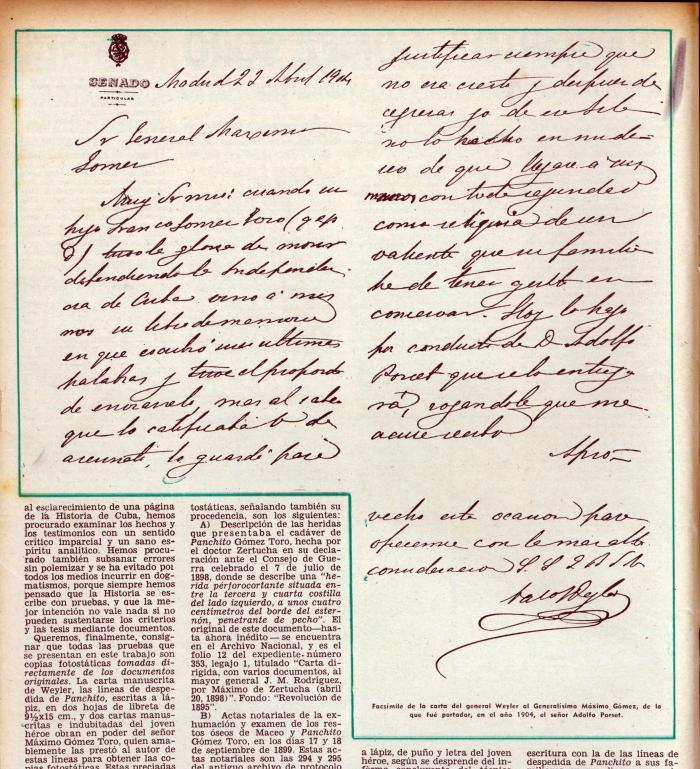 SENADO
PARTICULAR
Madrid 22 Abril 1904
Sr General Maximo
Gomez
Muy Sr mio: cuando su
hijo Franco Gomez Toro (q e p
d) tuvo la gloria de morir
defendiendo la Independen
cia de Cuba vino á mis
manos un libro de memoria
en que escribió sus ultimas
palabras y tuve el proposito
de enviarselo, mas al saber
que lo calificaba V de
asesinato, lo guardé para
justificar siempre que
no era cierto y despues de
regresar yo de
no lo he hecho en mi de-
seo de que llegase a sus
manos con toda seguridad
como reliquia de un
valiente que su familia
ha de tener gusto en
conservar. Hoy lo hago
por conducto de D. Adolfo
Porset que se lo entrega
rá, rogandole que me
acuse recibo
Apro-
vecho esta ocasion para
ofrecerme con la mas alta
consideracion S. S. Q B S M
Weyler
Facsímile de la carta del general Weyler al Generalísimo Máximo Gómez, de la
que fué portador, en el año 1904, el señor Adolfo Porset.
al esclarecimiento de una página
de la Historia de Cuba, hemos
procurado examinar los hechos y
los testimonios con un sentido
crítico imparcial y un sano es-
píritu analítico. Hemos procu-
rado también subsanar errores
sin polemizar y se ha evitado por
todos los medios incurrir en dog-
matismos, porque siempre hemos
pensado que la Historia se es-
cribe con pruebas, y que la me-
jor intención no vale nada si no
pueden sustentarse los criterios
y las tesis mediante documentos.
Queremos, finalmente, consig-
nar que todas las pruebas que
se presentan en este trabajo son
copias fotostáticas tomadas di-
rectamente de los documentos
originales. La carta manuscrita
de Weyler, las líneas de despe-
dida de Panchito, escritas a lá-
piz, en dos hojas de libreta de
9½x15 cm., y dos cartas manus-
critas e indubitadas del joven
héroe obran en poder del señor
Máximo Gómez Toro, quien ama-
blemente las prestó al autor de
estas líneas para obtener las co-
pias fotostáticas. Estas preciadas
tostáticas, señalando también su
procedencia, son los siguientes:
A) Descripción de las heridas
que presentaba el cadáver de
Panchito Gómez Toro, hecha por
el doctor Zertucha en su decla-
ración ante el Consejo de Gue-
rra celebrado el 7 de julio de
1898, donde se describe una "he-
rida pérforocortante situada en-
tre la tercera y cuarta costilla
del lado izquierdo, a unos cuatro
centímetros del borde del ester-
nón, penetrante de pecho". El
original de este documento—has-
ta ahora inédito—se encuentra
en el Archivo Nacional, y es el
folio 12 del expediente número
353, legajo 1, titulado "Carta di-
rigida, con varios documentos, al
mayor general J. M. Rodríguez,
por Máximo de Zertucha (abril
20, 1898)". Fondo: "Revolución de
1895".
B) Actas notariales de la ex-
humación y examen de los res-
tos óseos de Maceo y Panchito
Gómez Toro, en los días 17 y 18
de septiembre de 1899. Estas ac-
tas notariales son las 294 y 295
del antiguo archivo de protocolo
a lápiz, de puño y letra del joven
héroe, según se desprende del in-
escritura con la de las líneas de
despedida de Panchito a sus fa-